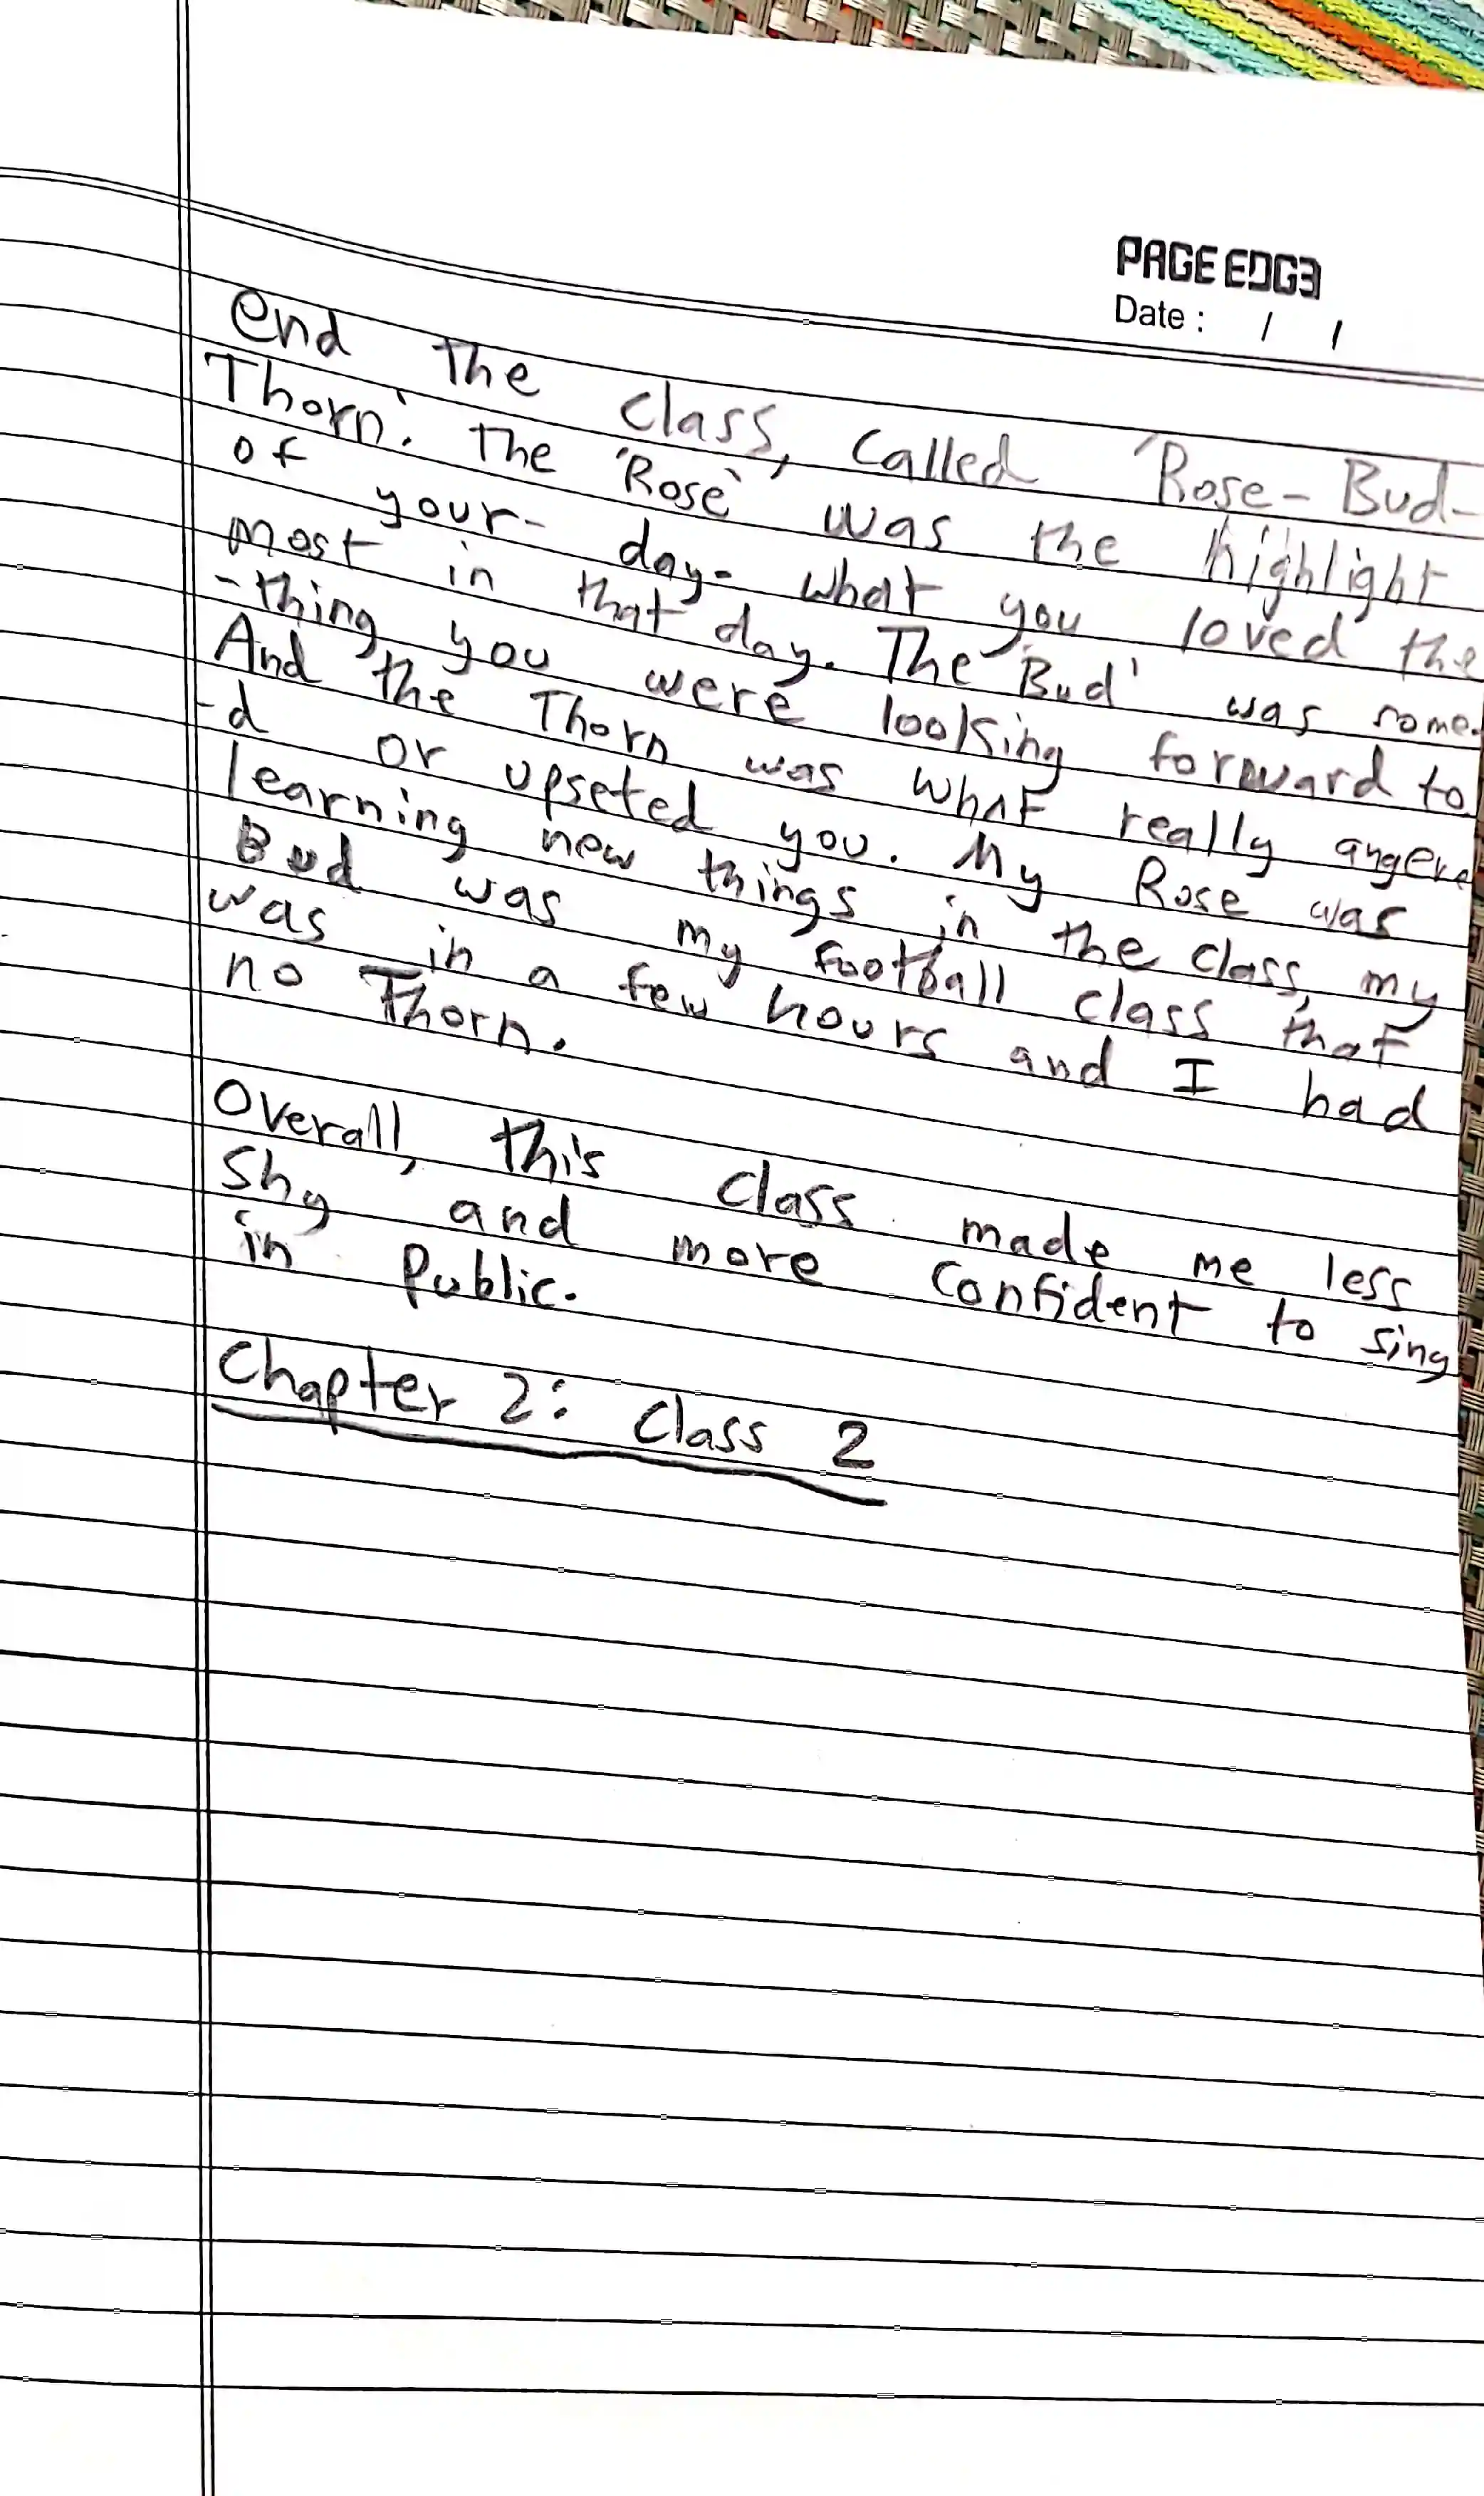 PAGE EDG3
Date : / /
end the class, called 'Rose-Bud-
Thorn'. The 'Rose' was the highlight
of your- day- what you loved the
most in that day. The 'Bud' was some-
-thing you were looking forward to.
And the Thorn was what really angere
-d or upseted you. My Rose was
learning new things in the class, my
Bud was my football class that
was in a few hours and I had
no Thorn.
Overall, this class made me less
shy and more confident to sing
in public.
Chapter 2: Class 2